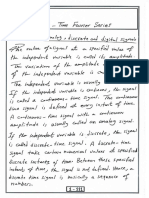 - Time Fourier Series
analog, discrete and digital signals
The value of a signal at a specified value of
the independent variable is called its amplitude
The variation of the amplitude
of the independent variable is
If the independent variable is continuous, the signal
is called a continuous-time signal. The continuous
time signal is defined at every instant of time.
A continuous-time signal with a continuous
amplitude is usually called an analog signal.
If the independent variable is discrete, the signal
is called discrete-time signal. A discrete-time
signal takes certain numerical values at specified
discrete instants of time. Between these specified
instants of time, the signal is not defined. Hence, a
discrete time signal is basically a sequence of
numbers.